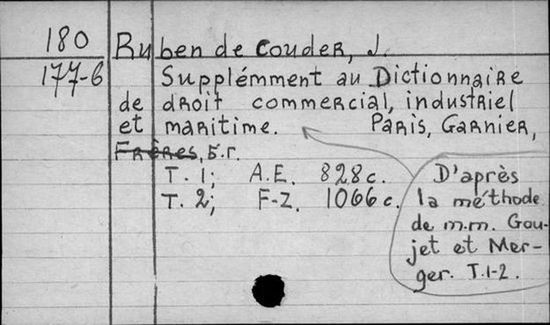 180 Ruben de Couder, J.
177-6 Supplémment au Dictionnaire
de droit commercial, industriel
et maritime. Paris, Garnier,
Frères, б.г.
T. 1; A.E. 828 c.
T. 2; F-Z. 1066 c.
D'après
la méthode
de m.m. Gou-
jet et Mer-
ger. T.1-2.